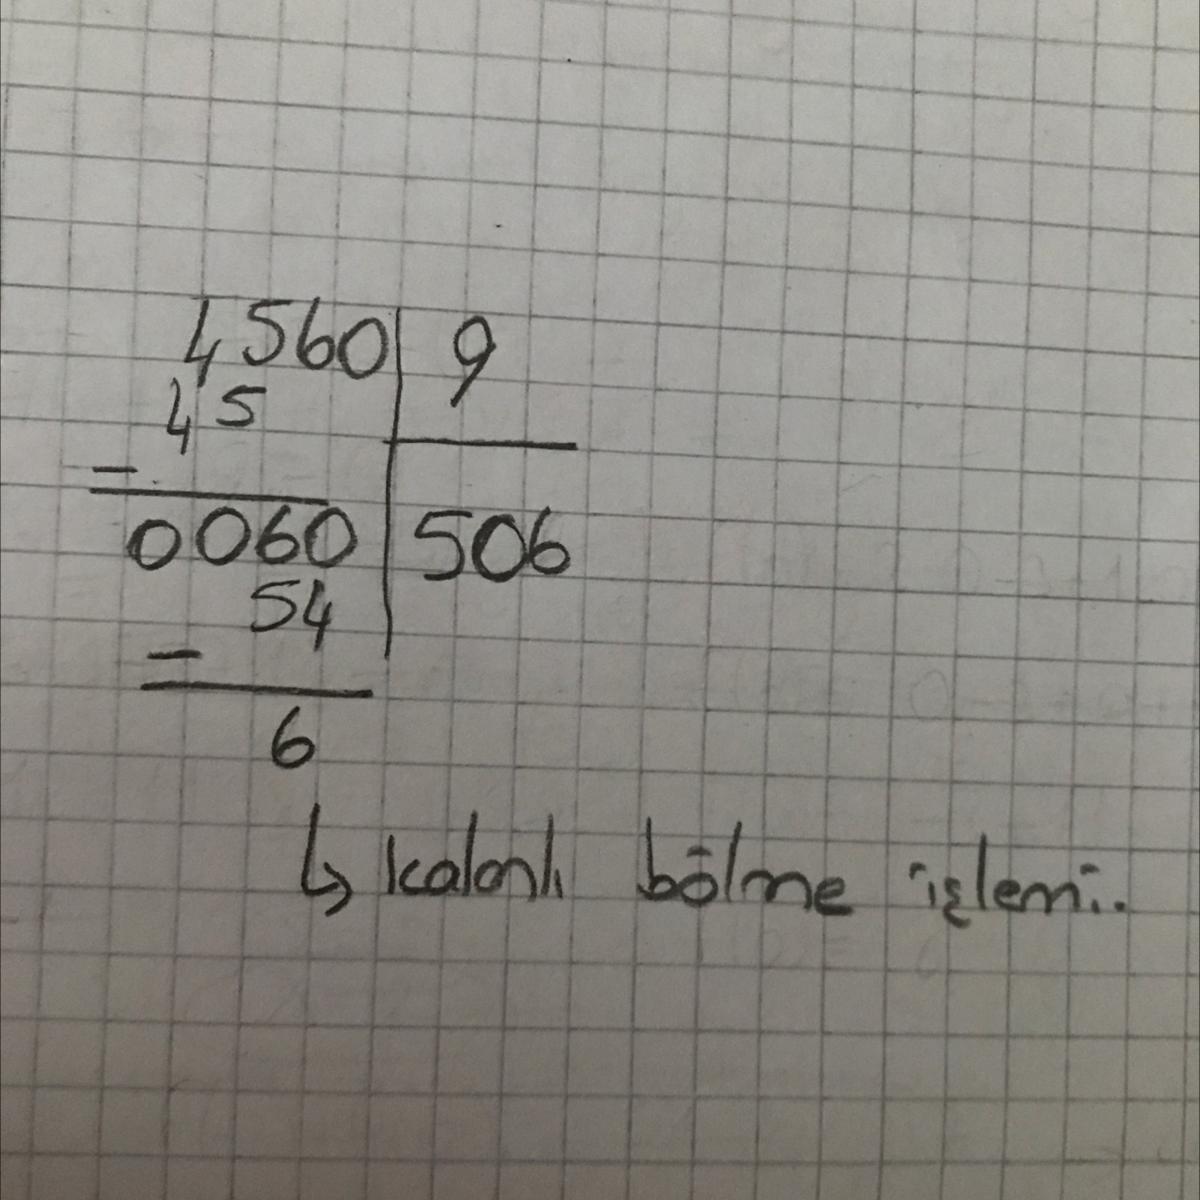 4560 9
45
-
0060 506
54
-
6
↳ kalanlı bölme işlemi..